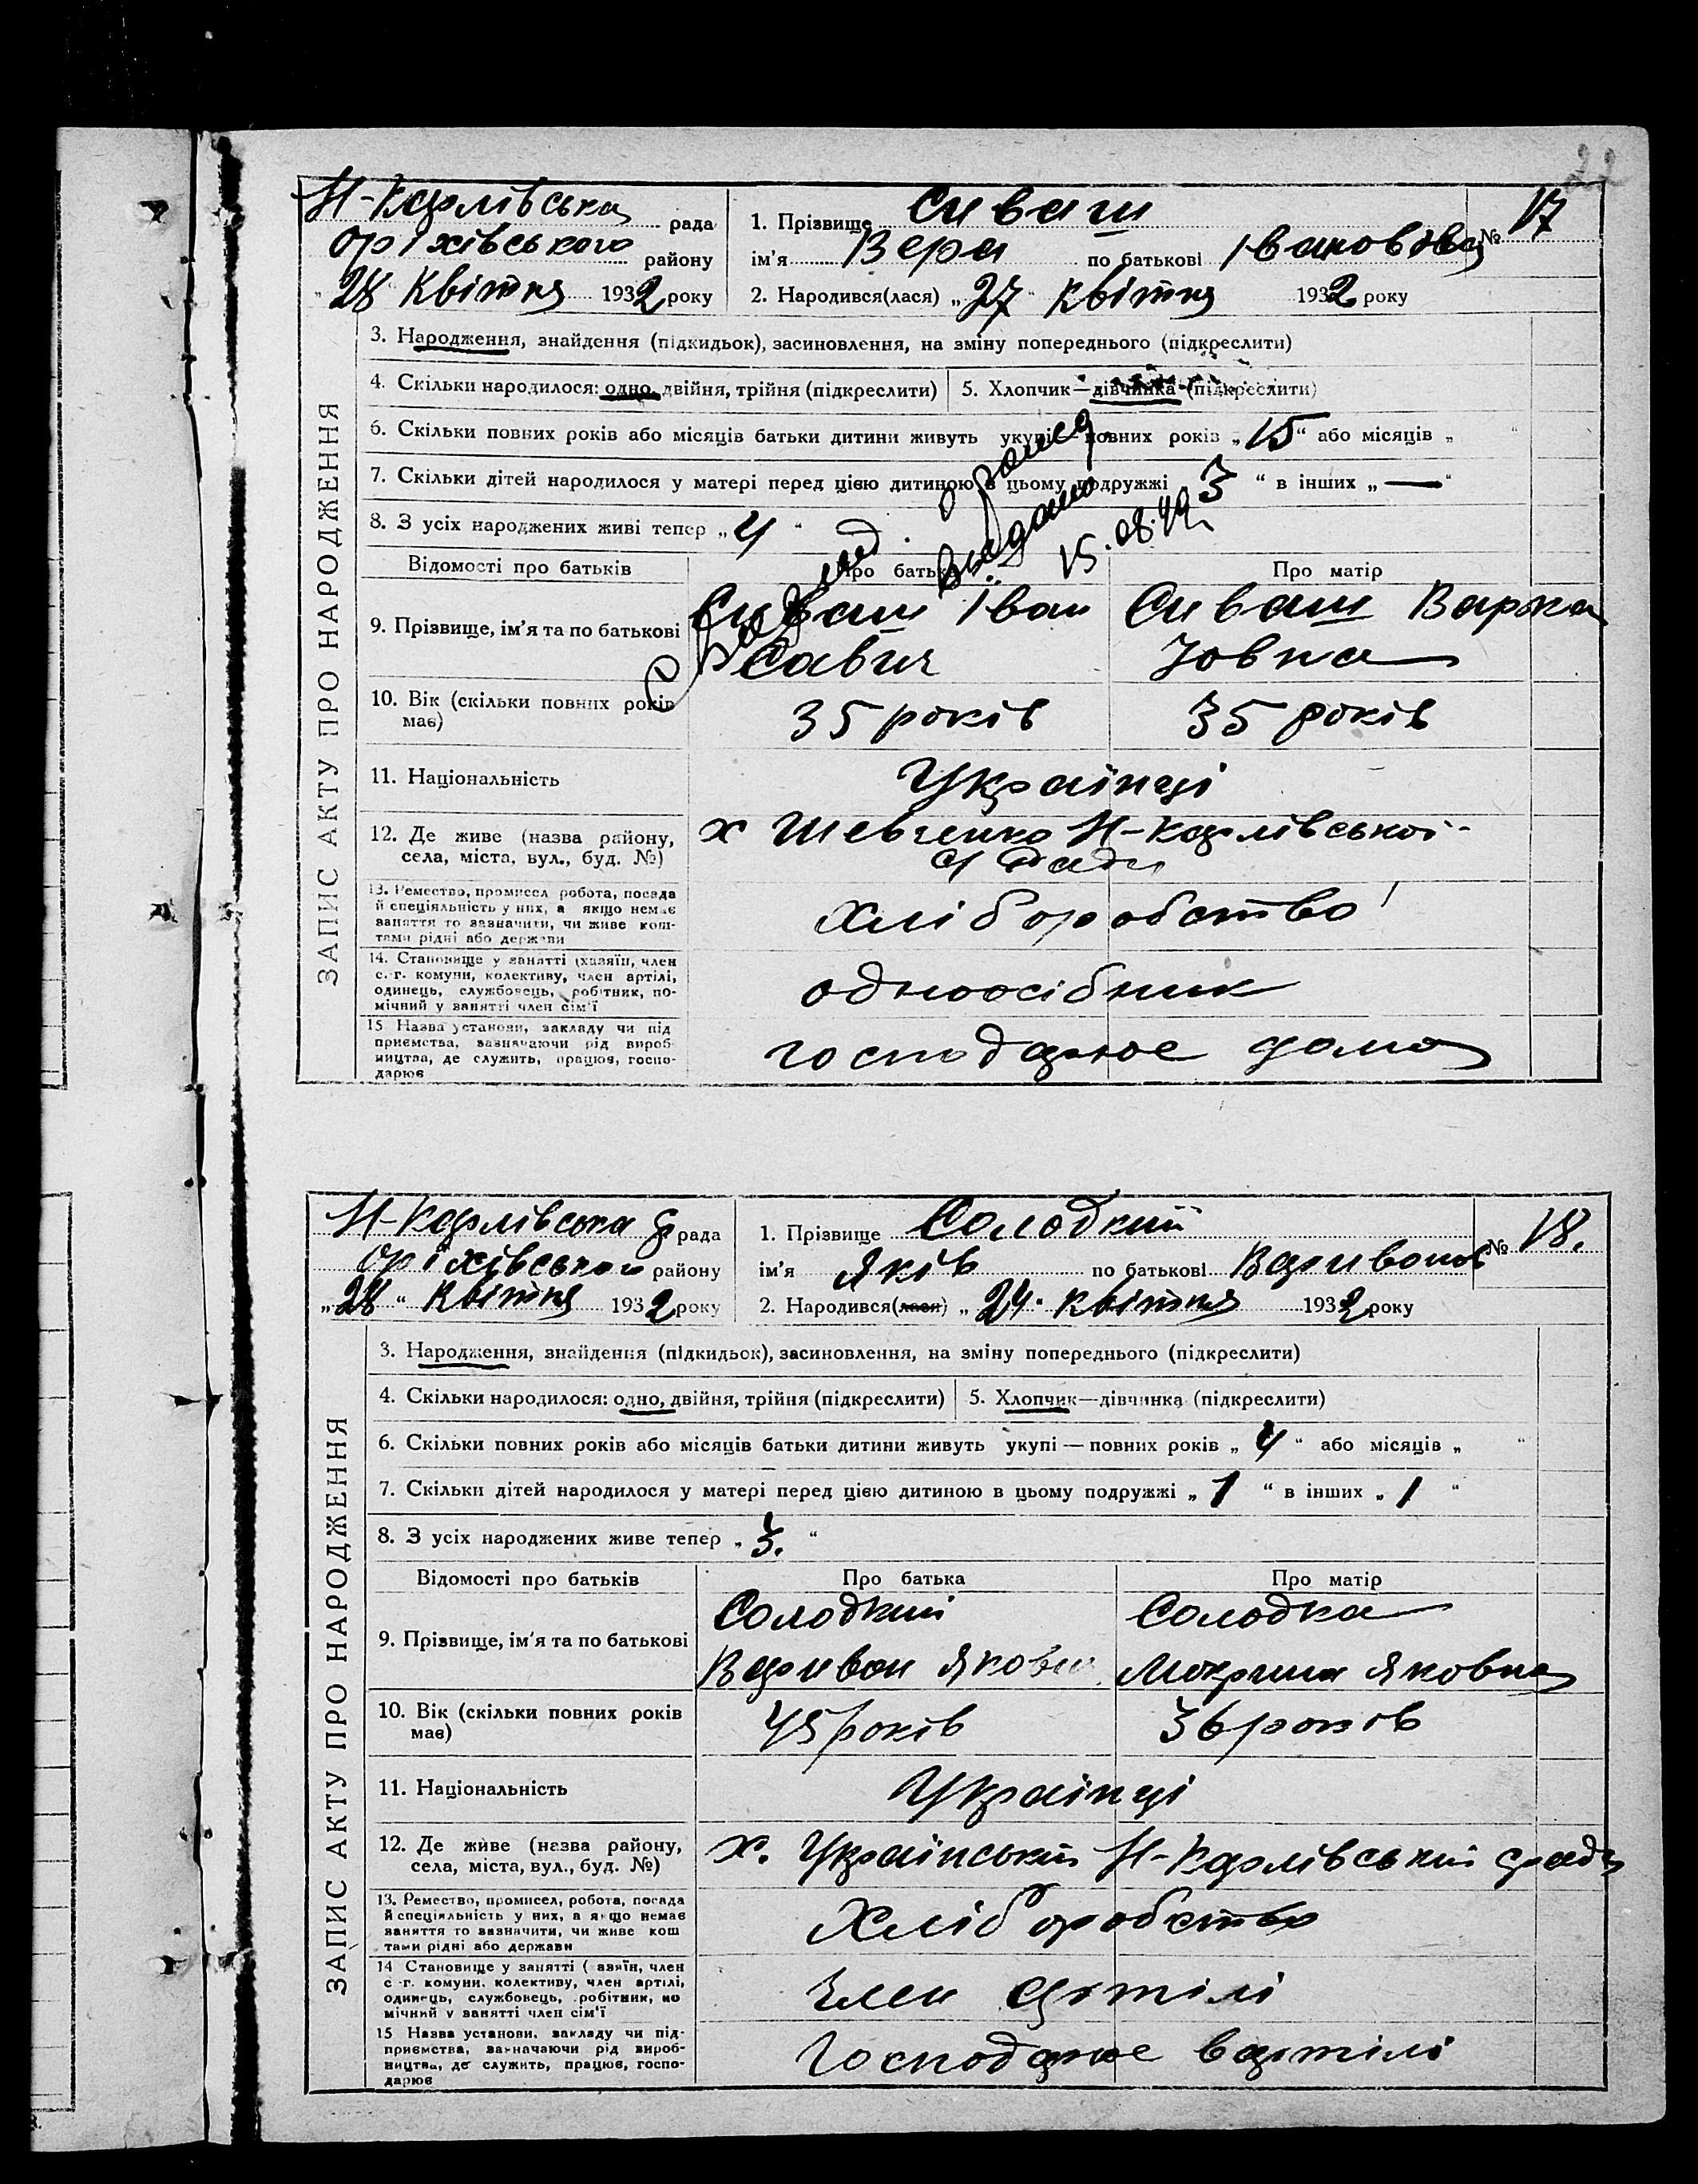 22
Н-Карлівська рада
Оріхівського району
„28 Квітня 1932 року
1. Прізвище Сиваш
ім'я Вера по батькові Івановова № 17
2. Народився(лася) „27" Квітня 1932 року
ЗАПИС АКТУ ПРО НАРОДЖЕННЯ
3. Народження, знайдення (підкидьок), засиновлення, на зміну попереднього (підкреслити)
4. Скільки народилося: одно, двійня, трійня (підкреслити) 5. Хлопчик—дівчинка (підкреслити)
6. Скільки повних років або місяців батьки дитини живуть укупі—повних років „15" або місяців „ "
7. Скільки дітей народилося у матері перед цією дитиною в цьому подружжі 3 " в інших „—"
8. З усіх народжених живі тепер „4"
о рожд.
Выдано
15.08.49г.
Відомості про батьків Про батька Про матір
9. Прізвище, ім'я та по батькові Сиваш Іван Сиваш Варка
Савич Iовна
10. Вік (скільки повних років 35 років 35 років
має)
11. Національність Українці
12. Де живе (назва району, х Шевченко Н-Карлівської
села, міста, вул., буд. №) с/ Ради
13. Ремество, промисел робота, посада
й спеціяльність у них, а якщо немає
заняття то зазначити, чи живе кош-
тами рідні або держави
Хліборобство
14. Становище у занятті (хазяїн, член
с.-г. комуни, колективу, член артілі,
одинець, службовець, робітник, по-
мічний у занятті член сім'ї
одноосібник
15 Назва установи, закладу чи під
приємства, зазначаючи рід вироб-
ництва, де служить, працює, госпо-
дарює
господарює дома
Н-Карлівська с/рада
Оріхівського району
„28" Квітня 1932 року
1. Прізвище Солодкий
ім'я Яків по батьковіВаривонов № 18.
2. Народився(лася) „24" Квітня 1932 року
ЗАПИС АКТУ ПРО НАРОДЖЕННЯ
3. Народження, знайдення (підкидьок), засиновлення, на зміну попереднього (підкреслити)
4. Скільки народилося: одно, двійня, трійня (підкреслити) 5. Хлопчик—дівчинка (підкреслити)
6. Скільки повних років або місяців батьки дитини живуть укупі—повних років „4" або місяців „ "
7. Скільки дітей народилося у матері перед цією дитиною в цьому подружжі „1 " в інших „1 "
8. З усіх народжених живе тепер „3."
Відомості про батьків Про батька Про матір
9. Прізвище, ім'я та по батькові Солодкий Солодка
Варивон Якович Мокрина Яковна
10. Вік (скільки повних років 45 років 36 років
має)
11. Національність Українці
12. Де живе (назва району, х. Український Н-Карлівський с/рада
села, міста, вул., буд. №)
13. Ремество, промисел, робота, посада
й спеціяльність у них, а якщо немає
заняття то зазначити, чи живе кош
тами рідні або держави
Хліборобство
14 Становище у занятті ( азяїн, член
с -г. комуни, колективу, член артілі,
одинець, службовець, робітник, по
мічний у занятті член сім'ї
Член артілі
15 Назва установи, закладу чи під-
приємства, зазначаючи рід вироб-
ництва, де служить, працює, госпо-
дарює
Господарює вартілі